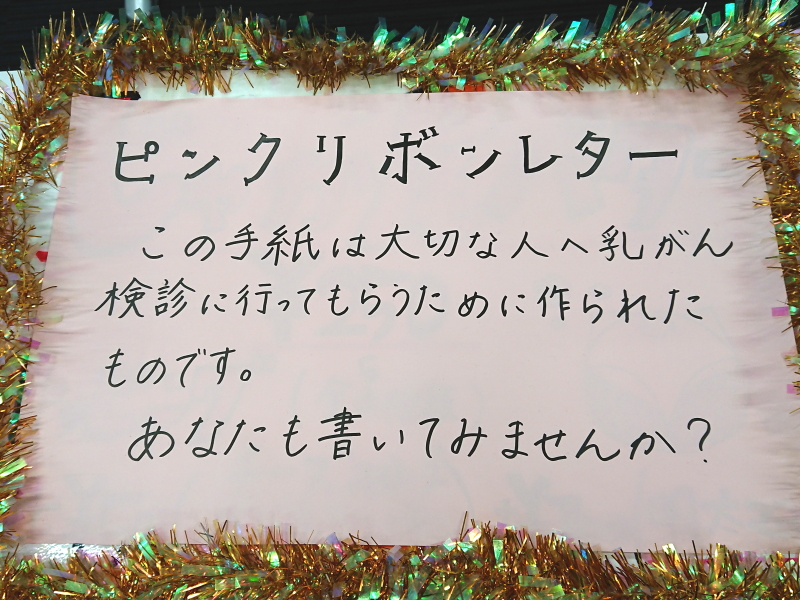 ピンクリボンレター
この手紙は大切な人へ乳がん
検診に行ってもらうために作られた
ものです。
あなたも書いてみませんか?